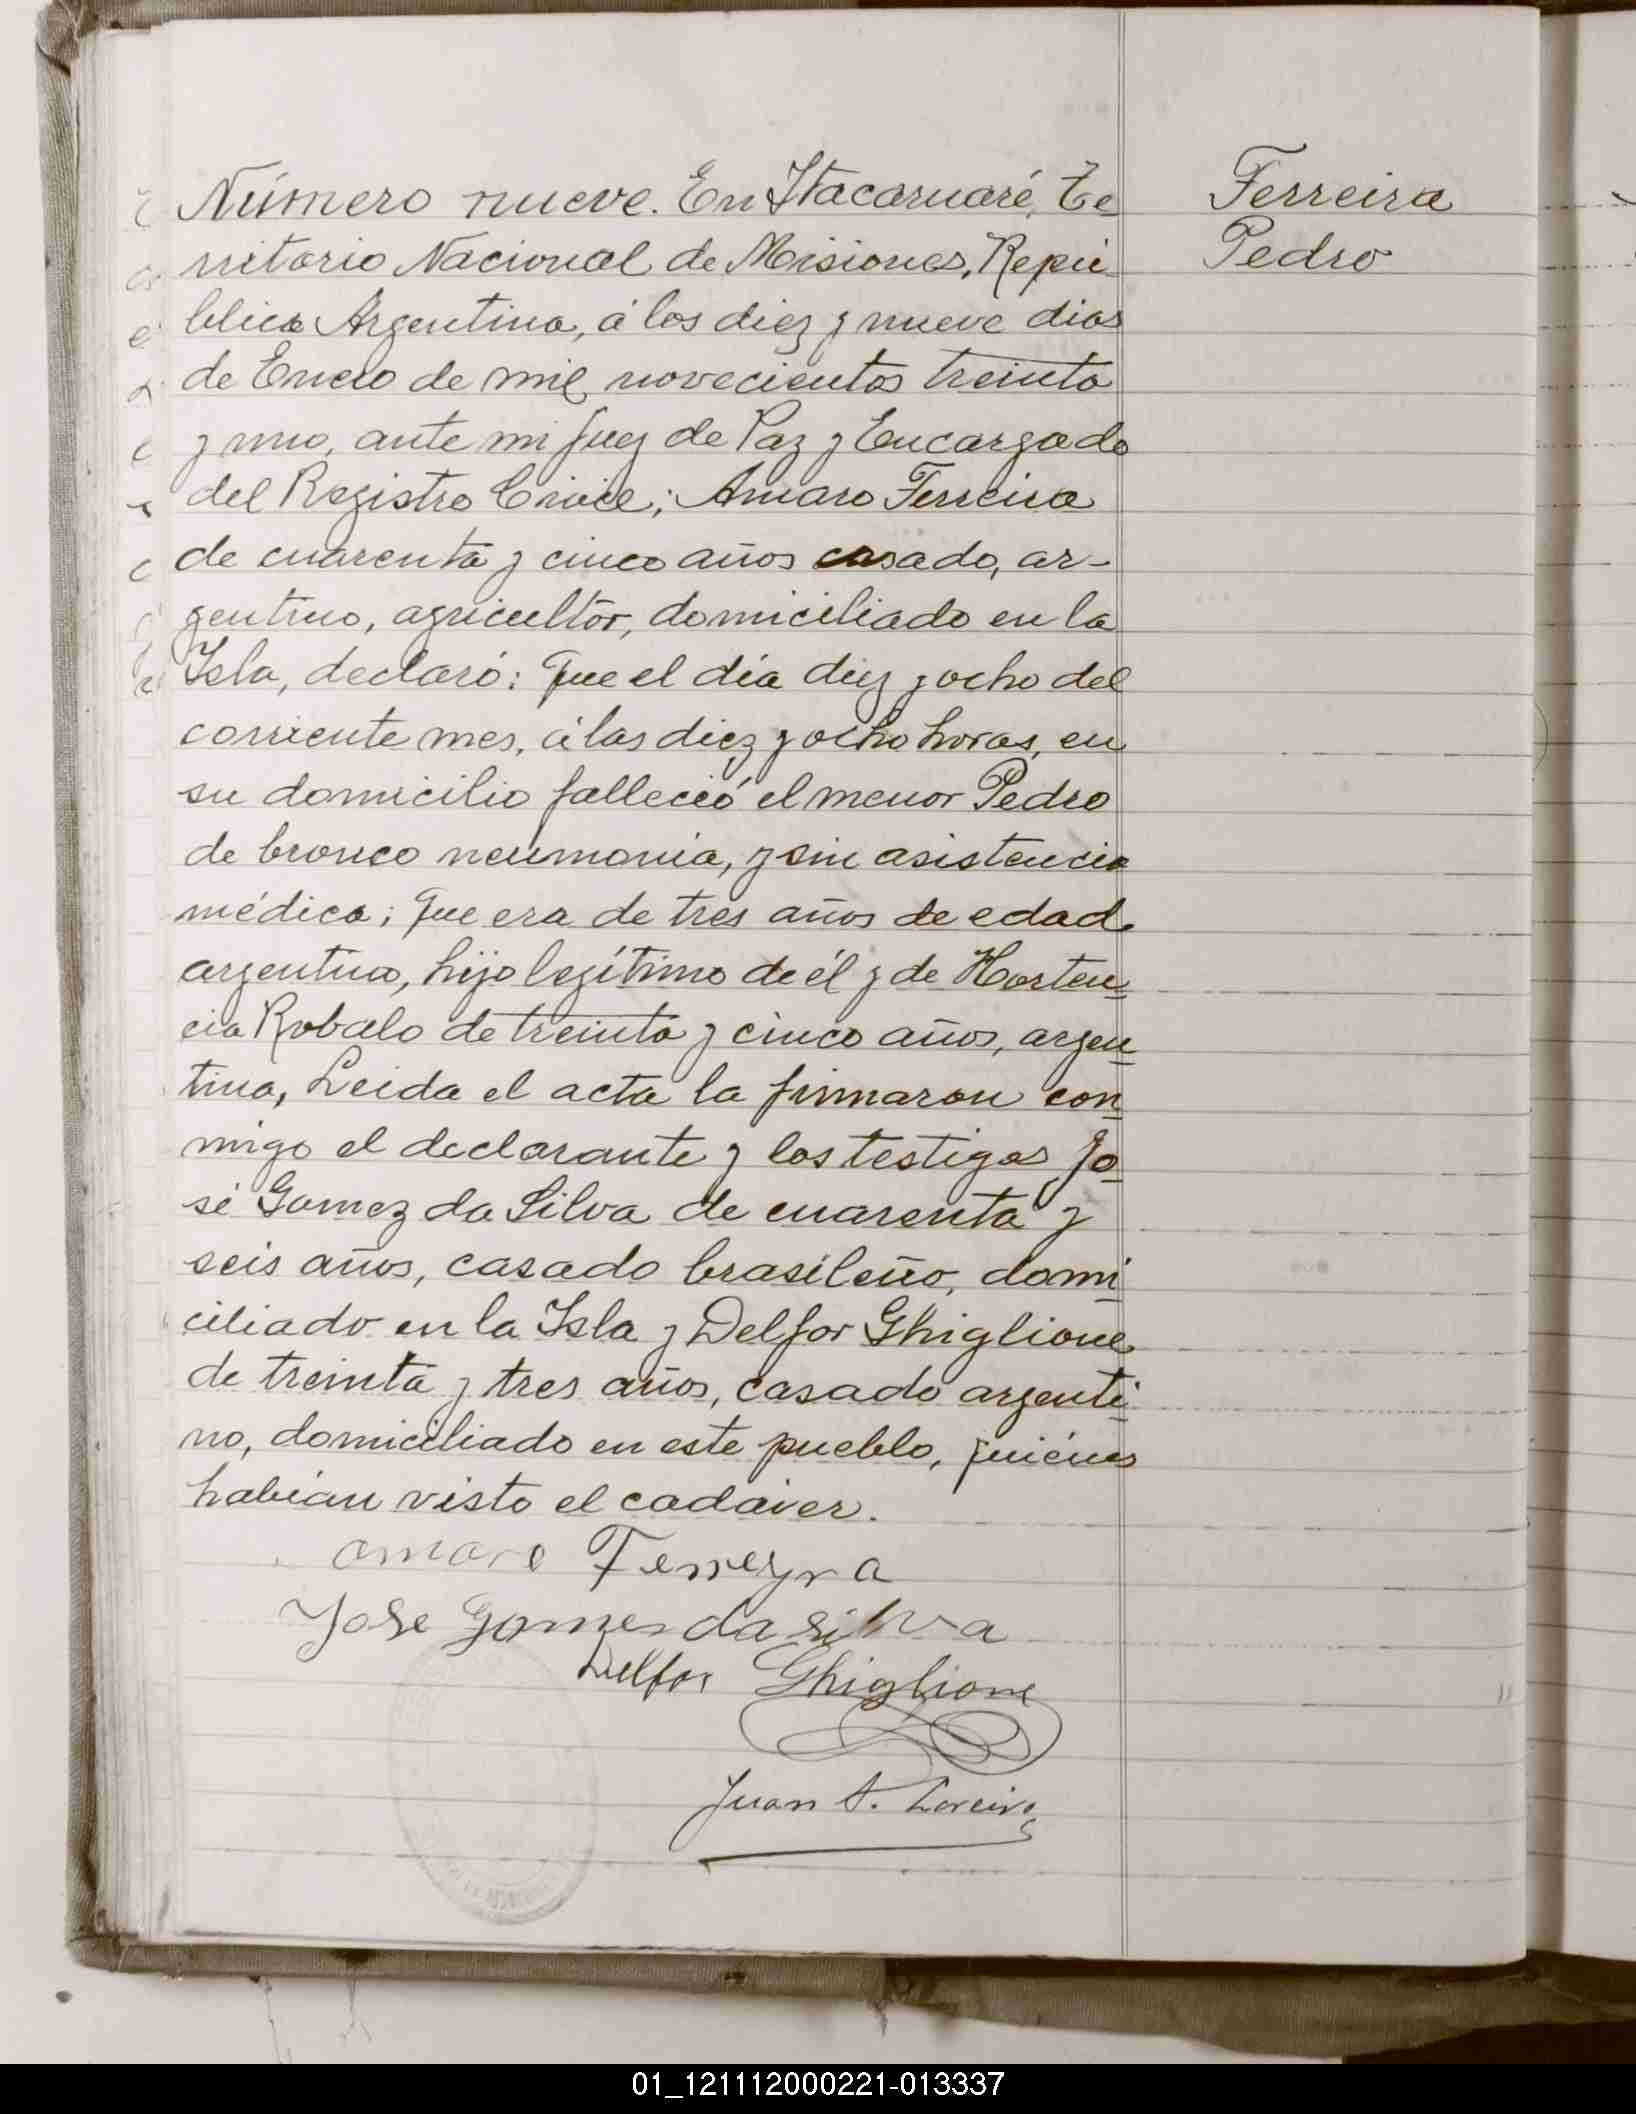 Número nueve. En Itacaruaré, Te
Ferreira
rritorio Nacional de Misiones, Repú
Pedro
blica Argentina, á los diez y nueve dias
de Enero de mil novecientos treinta
y uno, ante mi Juez de Paz y Encargado
del Registro Civil; Amaro Ferreira
de cuarenta y cinco años casado, ar-
gentino, agricultor, domiciliado en la
Isla, declaró: Que el día diez y ocho del
corriente mes, á las diez y ocho horas, en
su domicilio falleció el menor Pedro
de bronco neumonia, y sin asistencia
médica; Que era de tres años de edad
argentino, hijo legítimo de él y de Horten-
cia Robalo de treinta y cinco años, argen-
tina, Leida el acta la firmaron con-
migo el declarante y los testigos Jo-
sé Gomez da Silva de cuarenta y
seis años, casado brasileño, domi-
ciliado en la Isla y Delfor Ghiglione
de treinta y tres años, casado argenti-
no, domiciliado en este pueblo, quiénes
habían visto el cadáver.
amaro Ferreyra
Jose Gomes da silva
Delfor Ghiglione
Juan A.
01_121112000221-013337